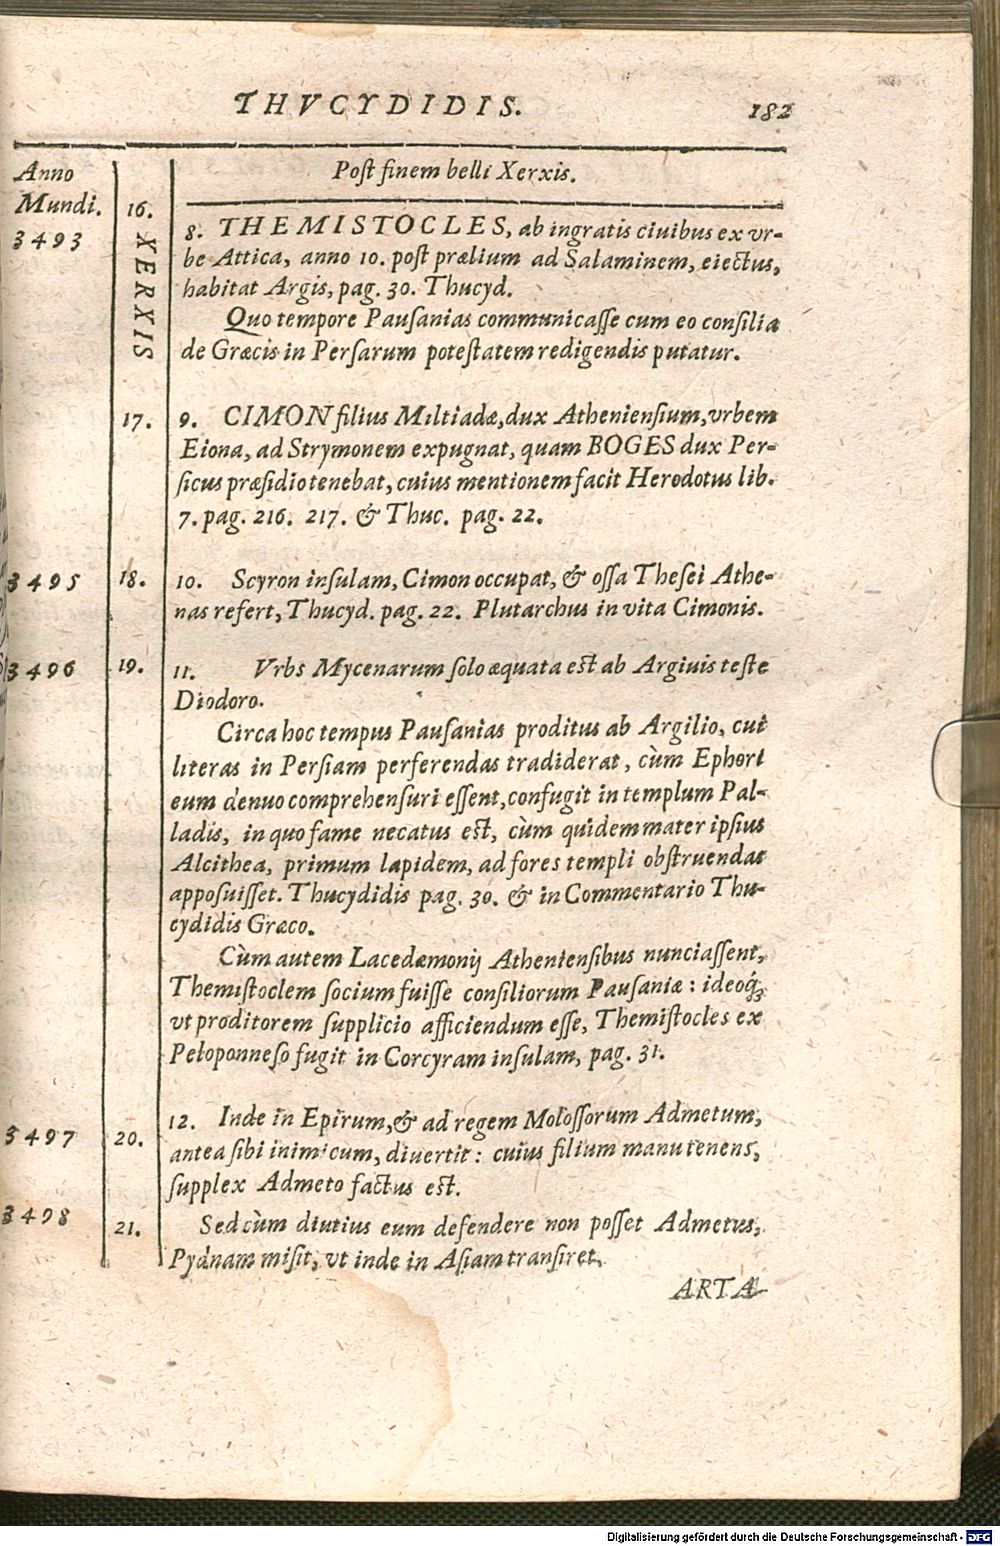 THVCYDIDIS. 182
Anno
Mundi.
Post finem belli Xerxis.
3493 16. XERXIS
8. THEMISTOCLES, ab ingratis ciuibus ex vr-
be Attica, anno 10. post prælium ad Salaminem, eiectus,
habitat Argis, pag. 30. Thucyd.
Quo tempore Pausanias communicasse cum eo consilia
de Græcis in Persarum potestatem redigendis putatur.
17. 9. CIMON filius Miltiadæ, dux Atheniensium, vrbem
Eiona, ad Strymonem expugnat, quam BOGES dux Per-
sicus præsidio tenebat, cuius mentionem facit Herodotus lib.
7. pag. 216. 217. & Thuc. pag. 22.
3495 18. 10. Scyron insulam, Cimon occupat, & ossa Thesei Athe-
nas refert, Thucyd. pag. 22. Plutarchus in vita Cimonis.
3496 19. 11. Vrbs Mycenarum solo æquata est ab Argiuis teste
Diodoro.
Circa hoc tempus Pausanias proditus ab Argilio, cui
literas in Persiam perferendas tradiderat, cùm Ephori
eum denuo comprehensuri essent, confugit in templum Pal-
ladis, in quo fame necatus est, cùm quidem mater ipsius
Alcithea, primum lapidem, ad fores templi obstruendas
apposuisset. Thucydidis pag. 30. & in Commentario Thu-
cydidis Græco.
Cùm autem Lacedæmonij Atheniensibus nunciassent,
Themistoclem socium fuisse consiliorum Pausaniæ: ideoq́;
vt proditorem supplicio afficiendum esse, Themistocles ex
Peloponneso fugit in Corcyram insulam, pag. 31.
3497 20. 12. Inde in Epirum, & ad regem Molossorum Admetum,
antea sibi inimicum, diuertit: cuius filium manu tenens,
supplex Admeto factus est.
3498 21. Sed cùm diutius eum defendere non posset Admetus,
Pydnam misit, vt inde in Asiam transiret.
ARTA-
Digitalisierung gefördert durch die Deutsche Forschungsgemeinschaft - DFG